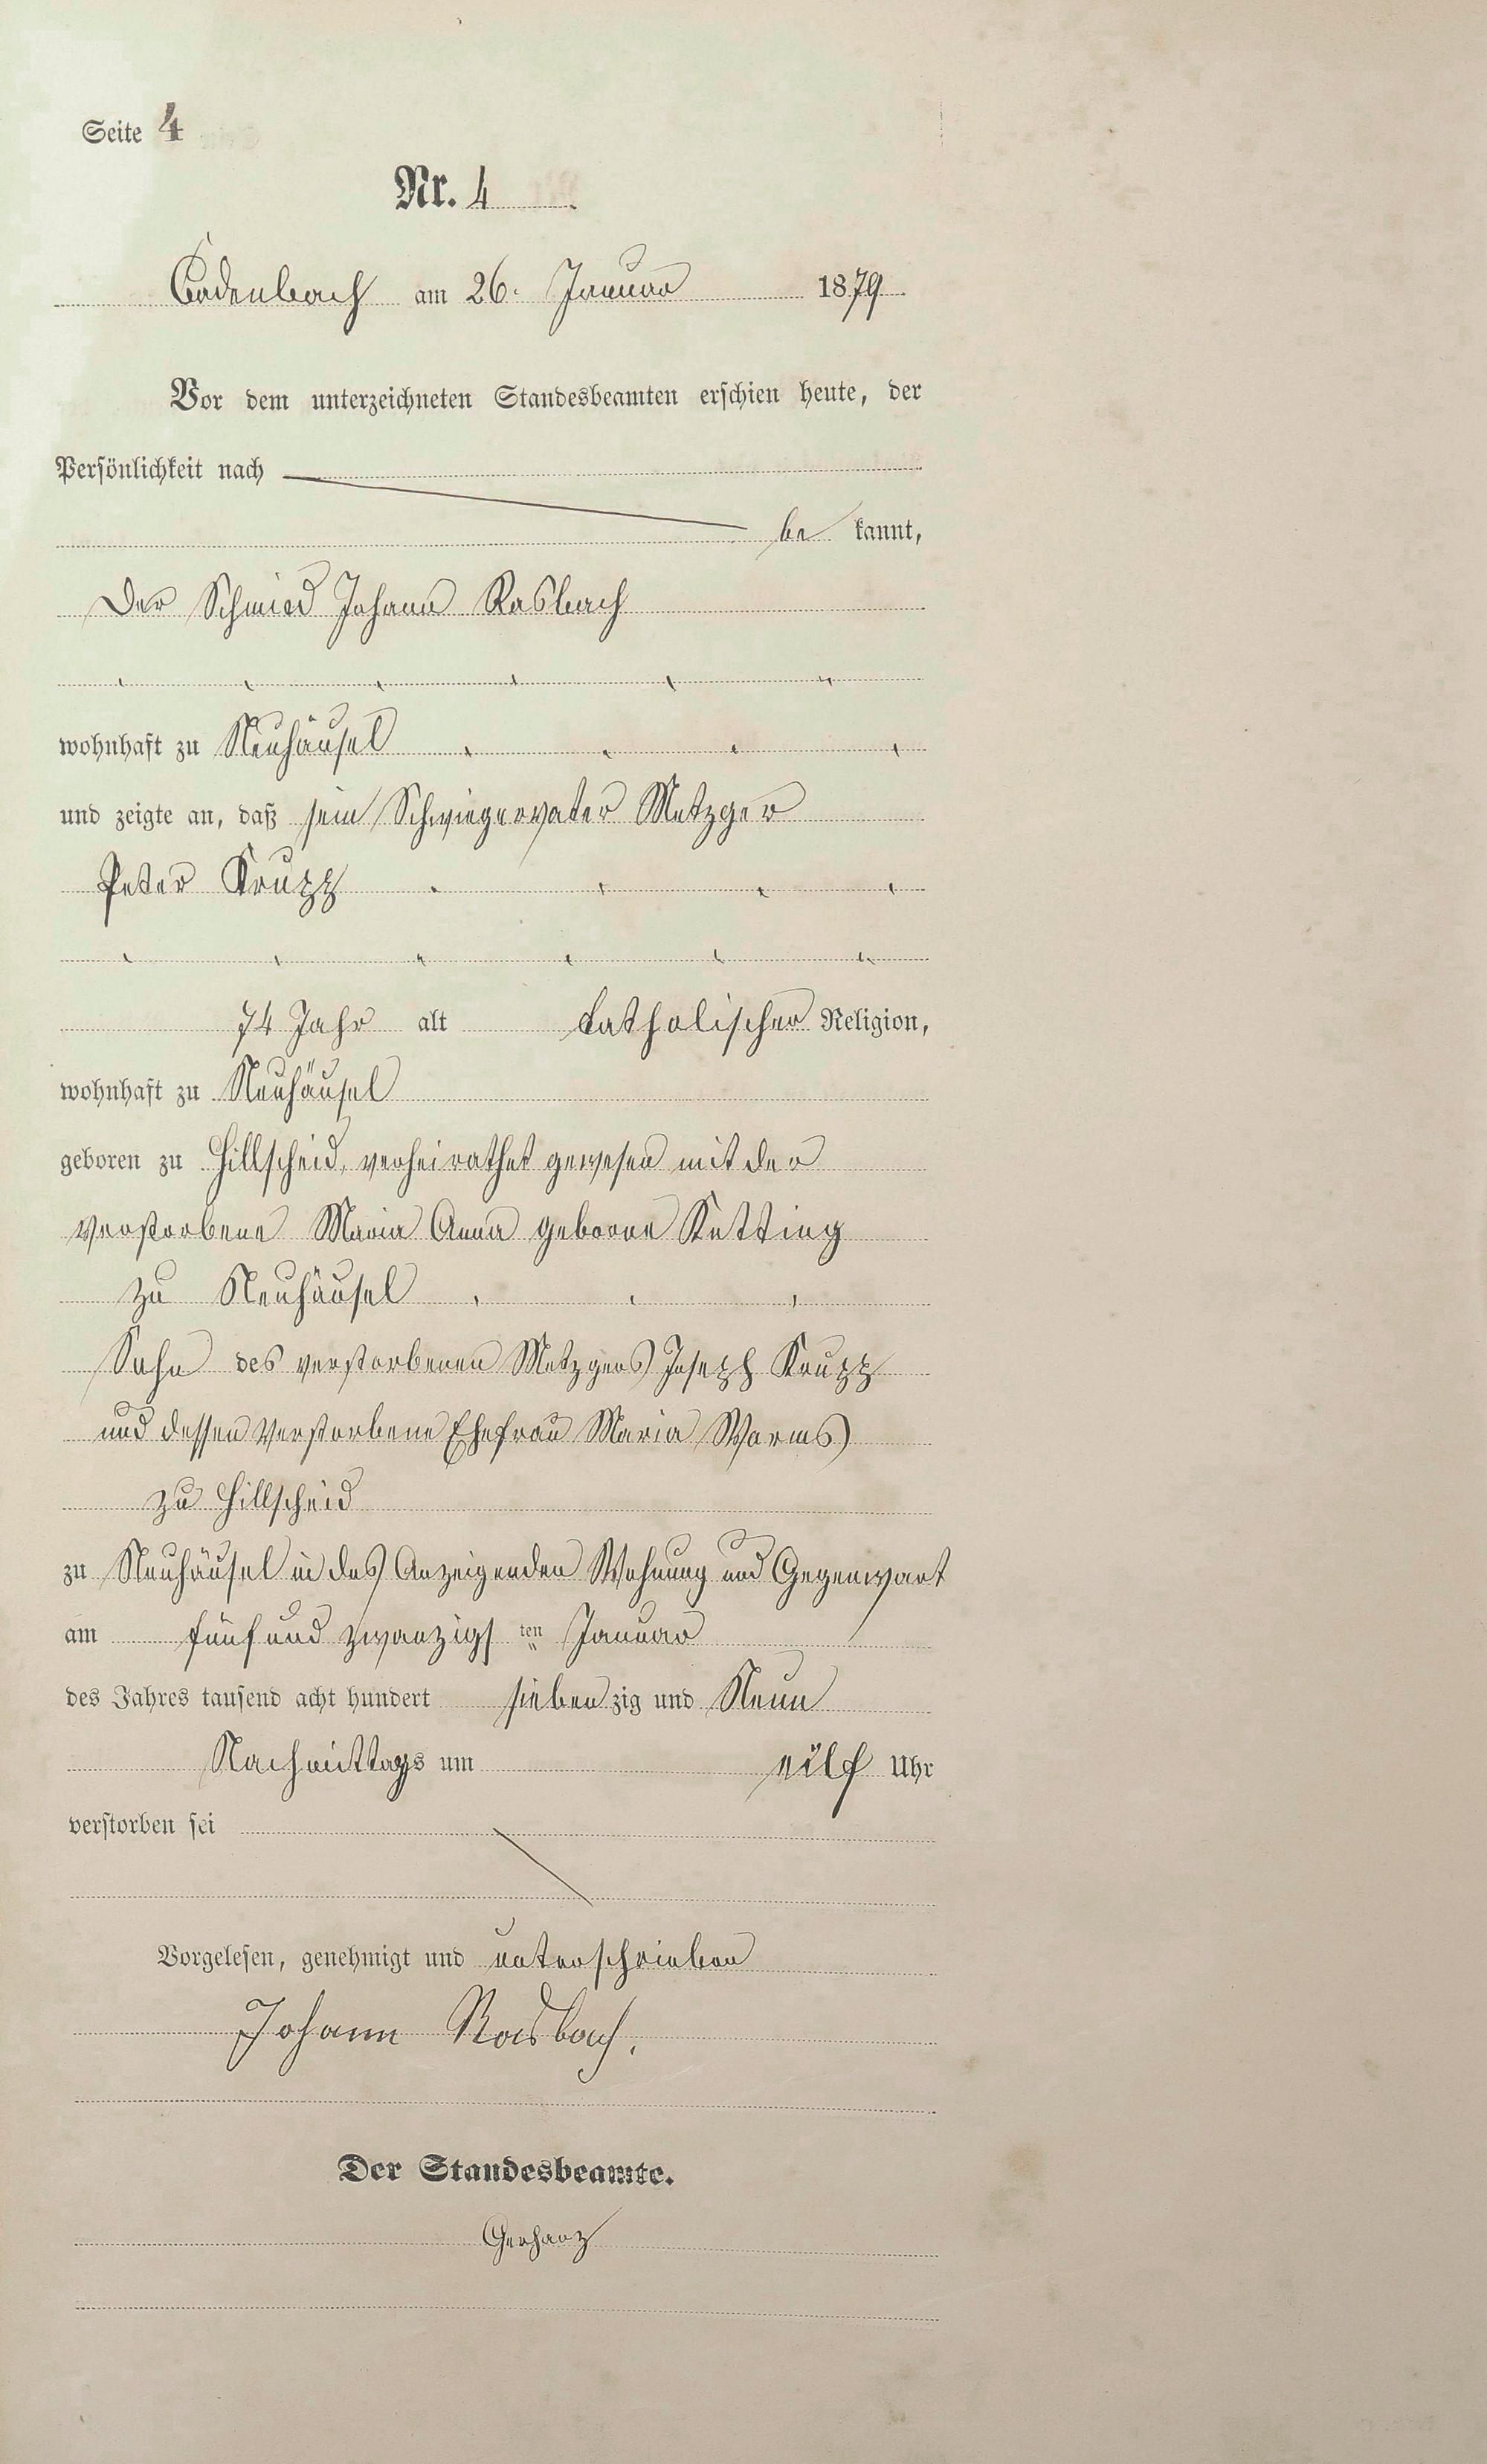 Seite 4
Nr. 4
Cadenbach am 26. Januar 1879
Vor dem unterzeichneten Standesbeamten erschien heute, der
Persönlichkeit nach
be kannt,
Der Schmied Johann Rasbach
wohnhaft zu Neuhäusel
und zeigte an, daß sein Schwiegervater Metzger
Peter Krupp
74 Jahr alt katholischer Religion,
wohnhaft zu Neuhäusel
geboren zu Hillscheid, verheirathet gewesen mit der
verstorbene Maria Anna geborne Ketting
zu Neuhäusel
Sohn des verstorbenen Metzgers Joseph Krupp
und dessen verstorbene Ehefrau Maria Worms
zu Hillscheid
zu Neuhäusel in des Anzeigenden Wohnung und Gegenwart
am fünf und zwanzigs ten Januar
des Jahres tausend acht hundert sieben zig und Neun
Nachmittags um eilf Uhr
verstorben sei
Vorgelesen, genehmigt und unterschrieben
Johann Rasbach.
Der Standesbeamte.
Gerharz